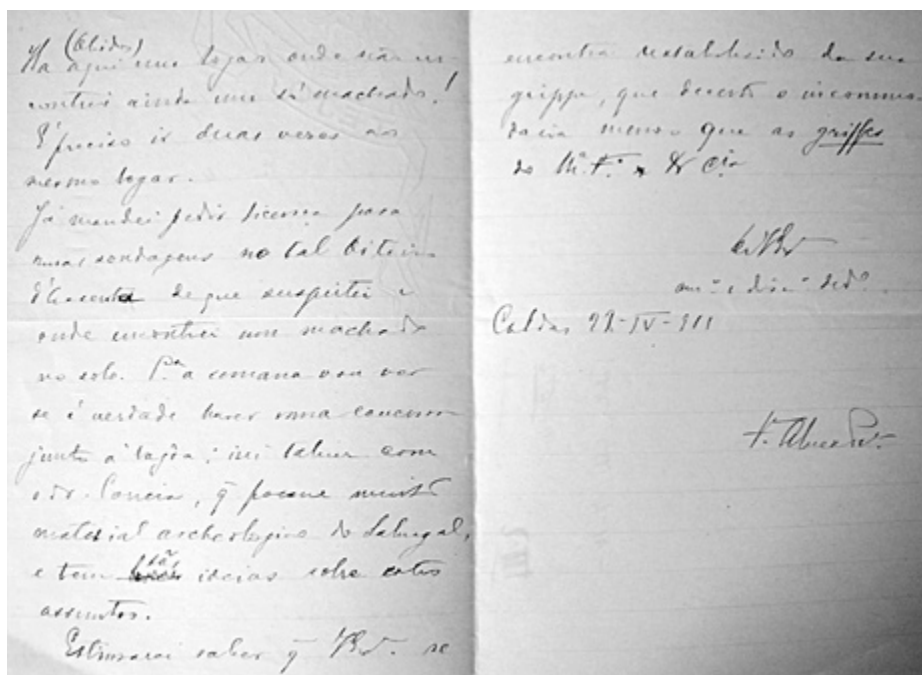 (Obidos)
Ha aqui um logar onde não en-
contrei ainda um só machado!
É preciso ir duas vezes ao
mesmo logar.
Já mandei pedir licença para
umas sondagens no tal Oiteiro
d'Assenta de que suspeitei e
onde encontrei um machado
no solo. P.ª a semana vou ver
se é verdade haver uma
junto á lagôa; irei talvez com
o dr. Correia, q̃ possue muito
material archeologico do Sabugal,
e tem sãs ideias sobre estes
assumptos.
Estimarei saber q̃ se
encontra restabelecido da sua
grippe, que decerto o incommo-
daria menos que as griffes
do M. F. & Cia
am.º e
Caldas -IV-911